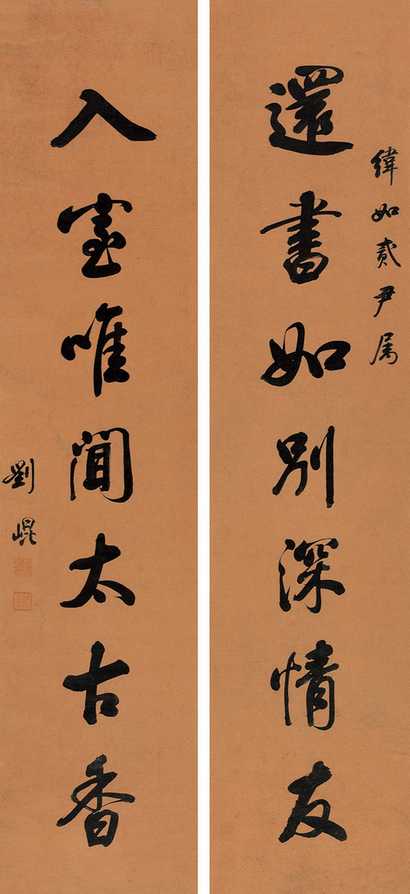 緯如貳尹属
還書如別深情友
入室唯聞太古香
劉崐